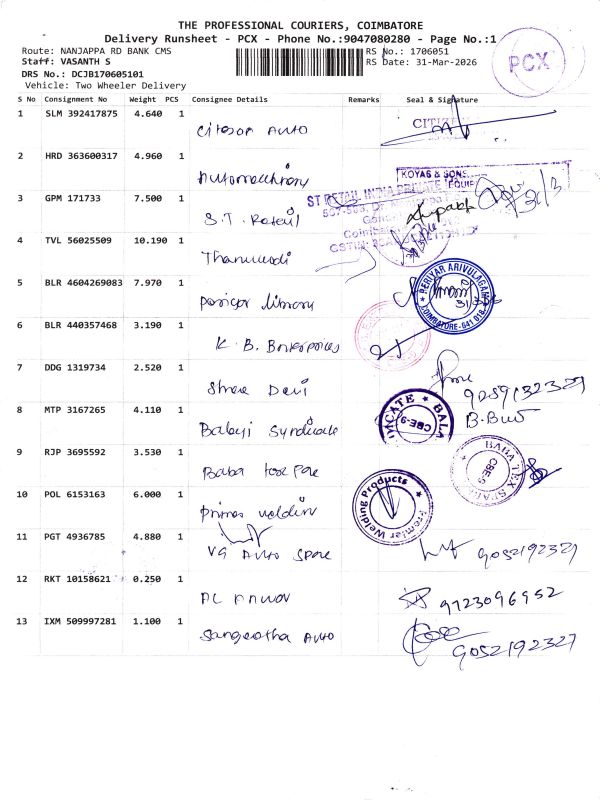 THE PROFESSIONAL COURIERS, COIMBATORE
Delivery Runsheet - PCX - Phone No.:9047080280 - Page No.:1
Route: NANJAPPA RD BANK CMS RS No.: 1706051
Staff: VASANTH S RS Date: 31-Mar-2026
DRS No.: DCJB170605101
Vehicle: Two Wheeler Delivery
PCX
S No Consignment No Weight PCS Consignee Details Remarks Seal & Signature
1 SLM 392417875 4.640 1
Auto
2 HRD 363600317 4.960 1
KOYAS & SONS
3 GPM 171733 7.500 1
ST RETAIL INDIA PRIVATE
S.T. Retail
31/3
4 TVL 56025509 10.190 1
5 BLR 4604269083 7.970 1
library
PERIYAR ARIVULAGAM
COIMBATORE-641 018
6 BLR 440357468 3.190 1
K. B. Enterprices
7 DDG 1319734 2.520 1
Shree Devi
9052192327
8 MTP 3167265 4.110 1
Balaji Syndicate
CBE-9
9 RJP 3695592 3.530 1
Baba
BABA TEX
CBE-9
10 POL 6153163 6.000 1
Premier Welding Products
11 PGT 4936785 4.880 1
VG Auto Spare
9052192327
12 RKT 10158621 0.250 1
9723096952
13 IXM 509997281 1.100 1
Sangeetha Auto
9052192327